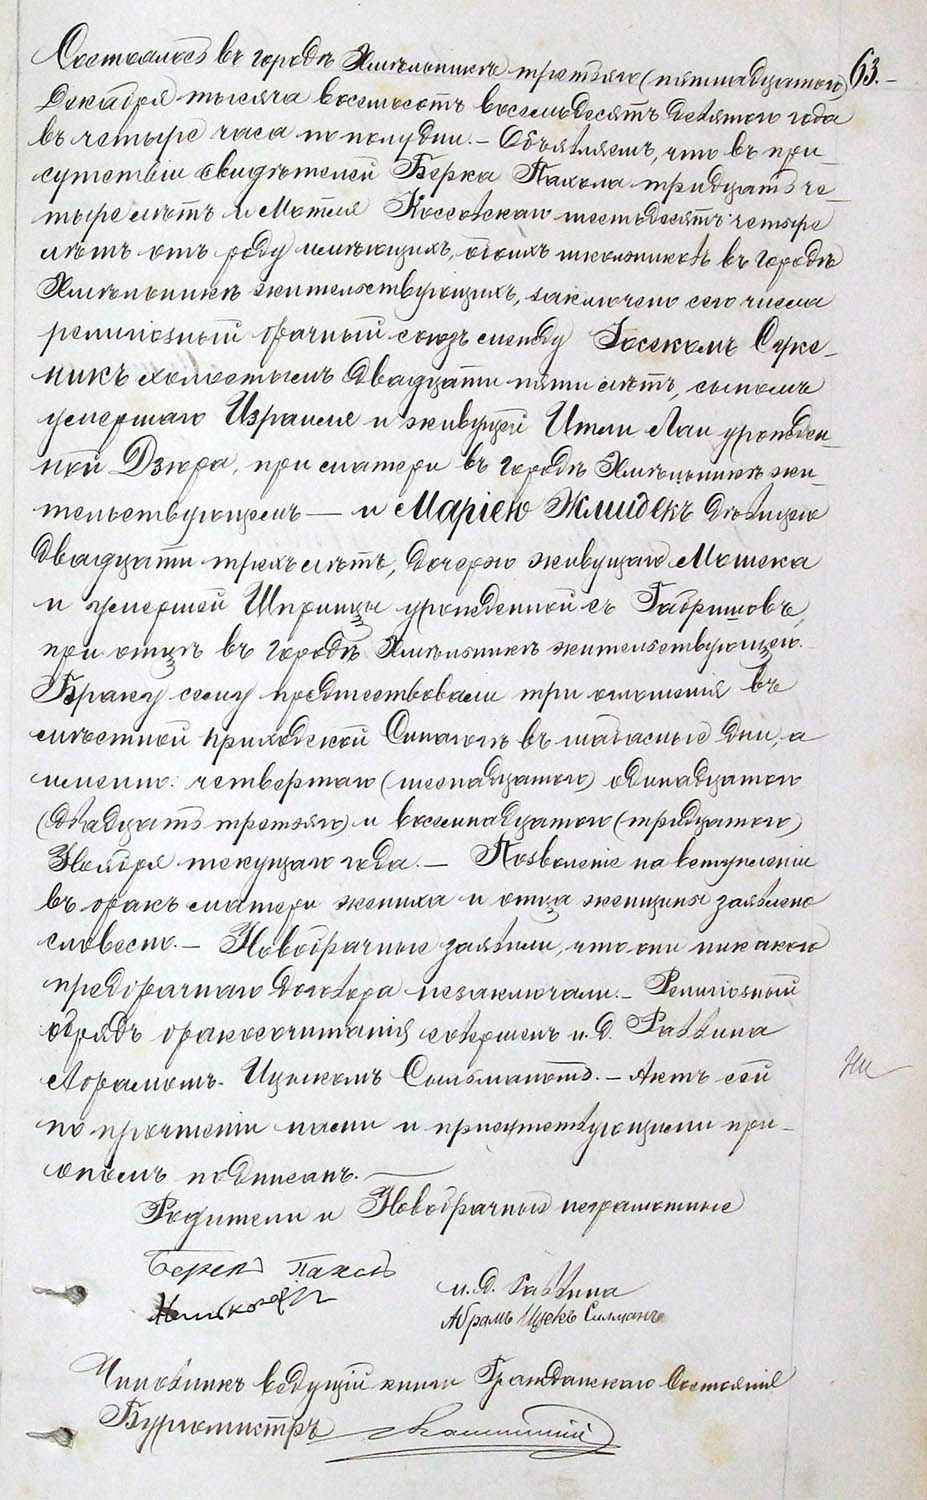 Состоялось въ городѣ Хмѣльникѣ третьяго (пятнадцатаго) 63.-
Декабря тысяча восемьсотъ восемьдесятъ девятаго года
въ четыре часа по полудни.- Объявляемъ, что въ при-
сутствіи свидѣтелей Берка Пахола тридцать че-
тыре лѣтъ и Мотеля Косовскаго шестьдесятъ четыре
лѣтъ отъ роду имѣющихъ, обоихъ школьниковъ въ городѣ
Хмѣльникѣ жительствующихъ, заключено сего числа
религіозный брачный союзъ между Іосекомъ Суке-
никъ холостымъ двадцати пяти лѣтъ, сыномъ
умершаго Израиля и живущей Итли Лаи урожден-
ной Дзюра, при матери въ городѣ Хмѣльникѣ жи-
тельствующемъ — и Маріею Жмидекъ дѣвицею
двадцати трехъ лѣтъ, дочерью живущаго Мошека
и умершей Шпринцы урожденной съ Габришовъ,
при отцѣ въ городѣ Хмѣльникѣ жительствующею.
Браку сему предшествовали три оглашенія въ
мѣстной приходской Синагогѣ въ шабасные дни, а
именно: четвертаго (шестнадцатаго) одинадцатаго
(двадцать третьяго) и восемнадцатаго (тридцатаго)
Ноября текущаго года.- Позволеніе на вступленіе
въ бракъ матери жениха и отца женщины заявлено
словесно.- Новобрачные заявили, что они никакого
предбрачнаго договора незаключали.- Религіозный
обрядъ бракосочитанія совершенъ и.д. Раввина
Абрамомъ-Ицыкомъ Сильманомъ.- Актъ сей
по прочтеніи нами и присутствующими при
ономъ подписанъ.—
Родители и Новобрачные неграмотные
Берекъ Пахолъ
и.д. Раввина
Абрамъ Ицекъ Силманъ
Чиновникъ ведущій книги Гражданскаго Состоянія
Бургомистръ